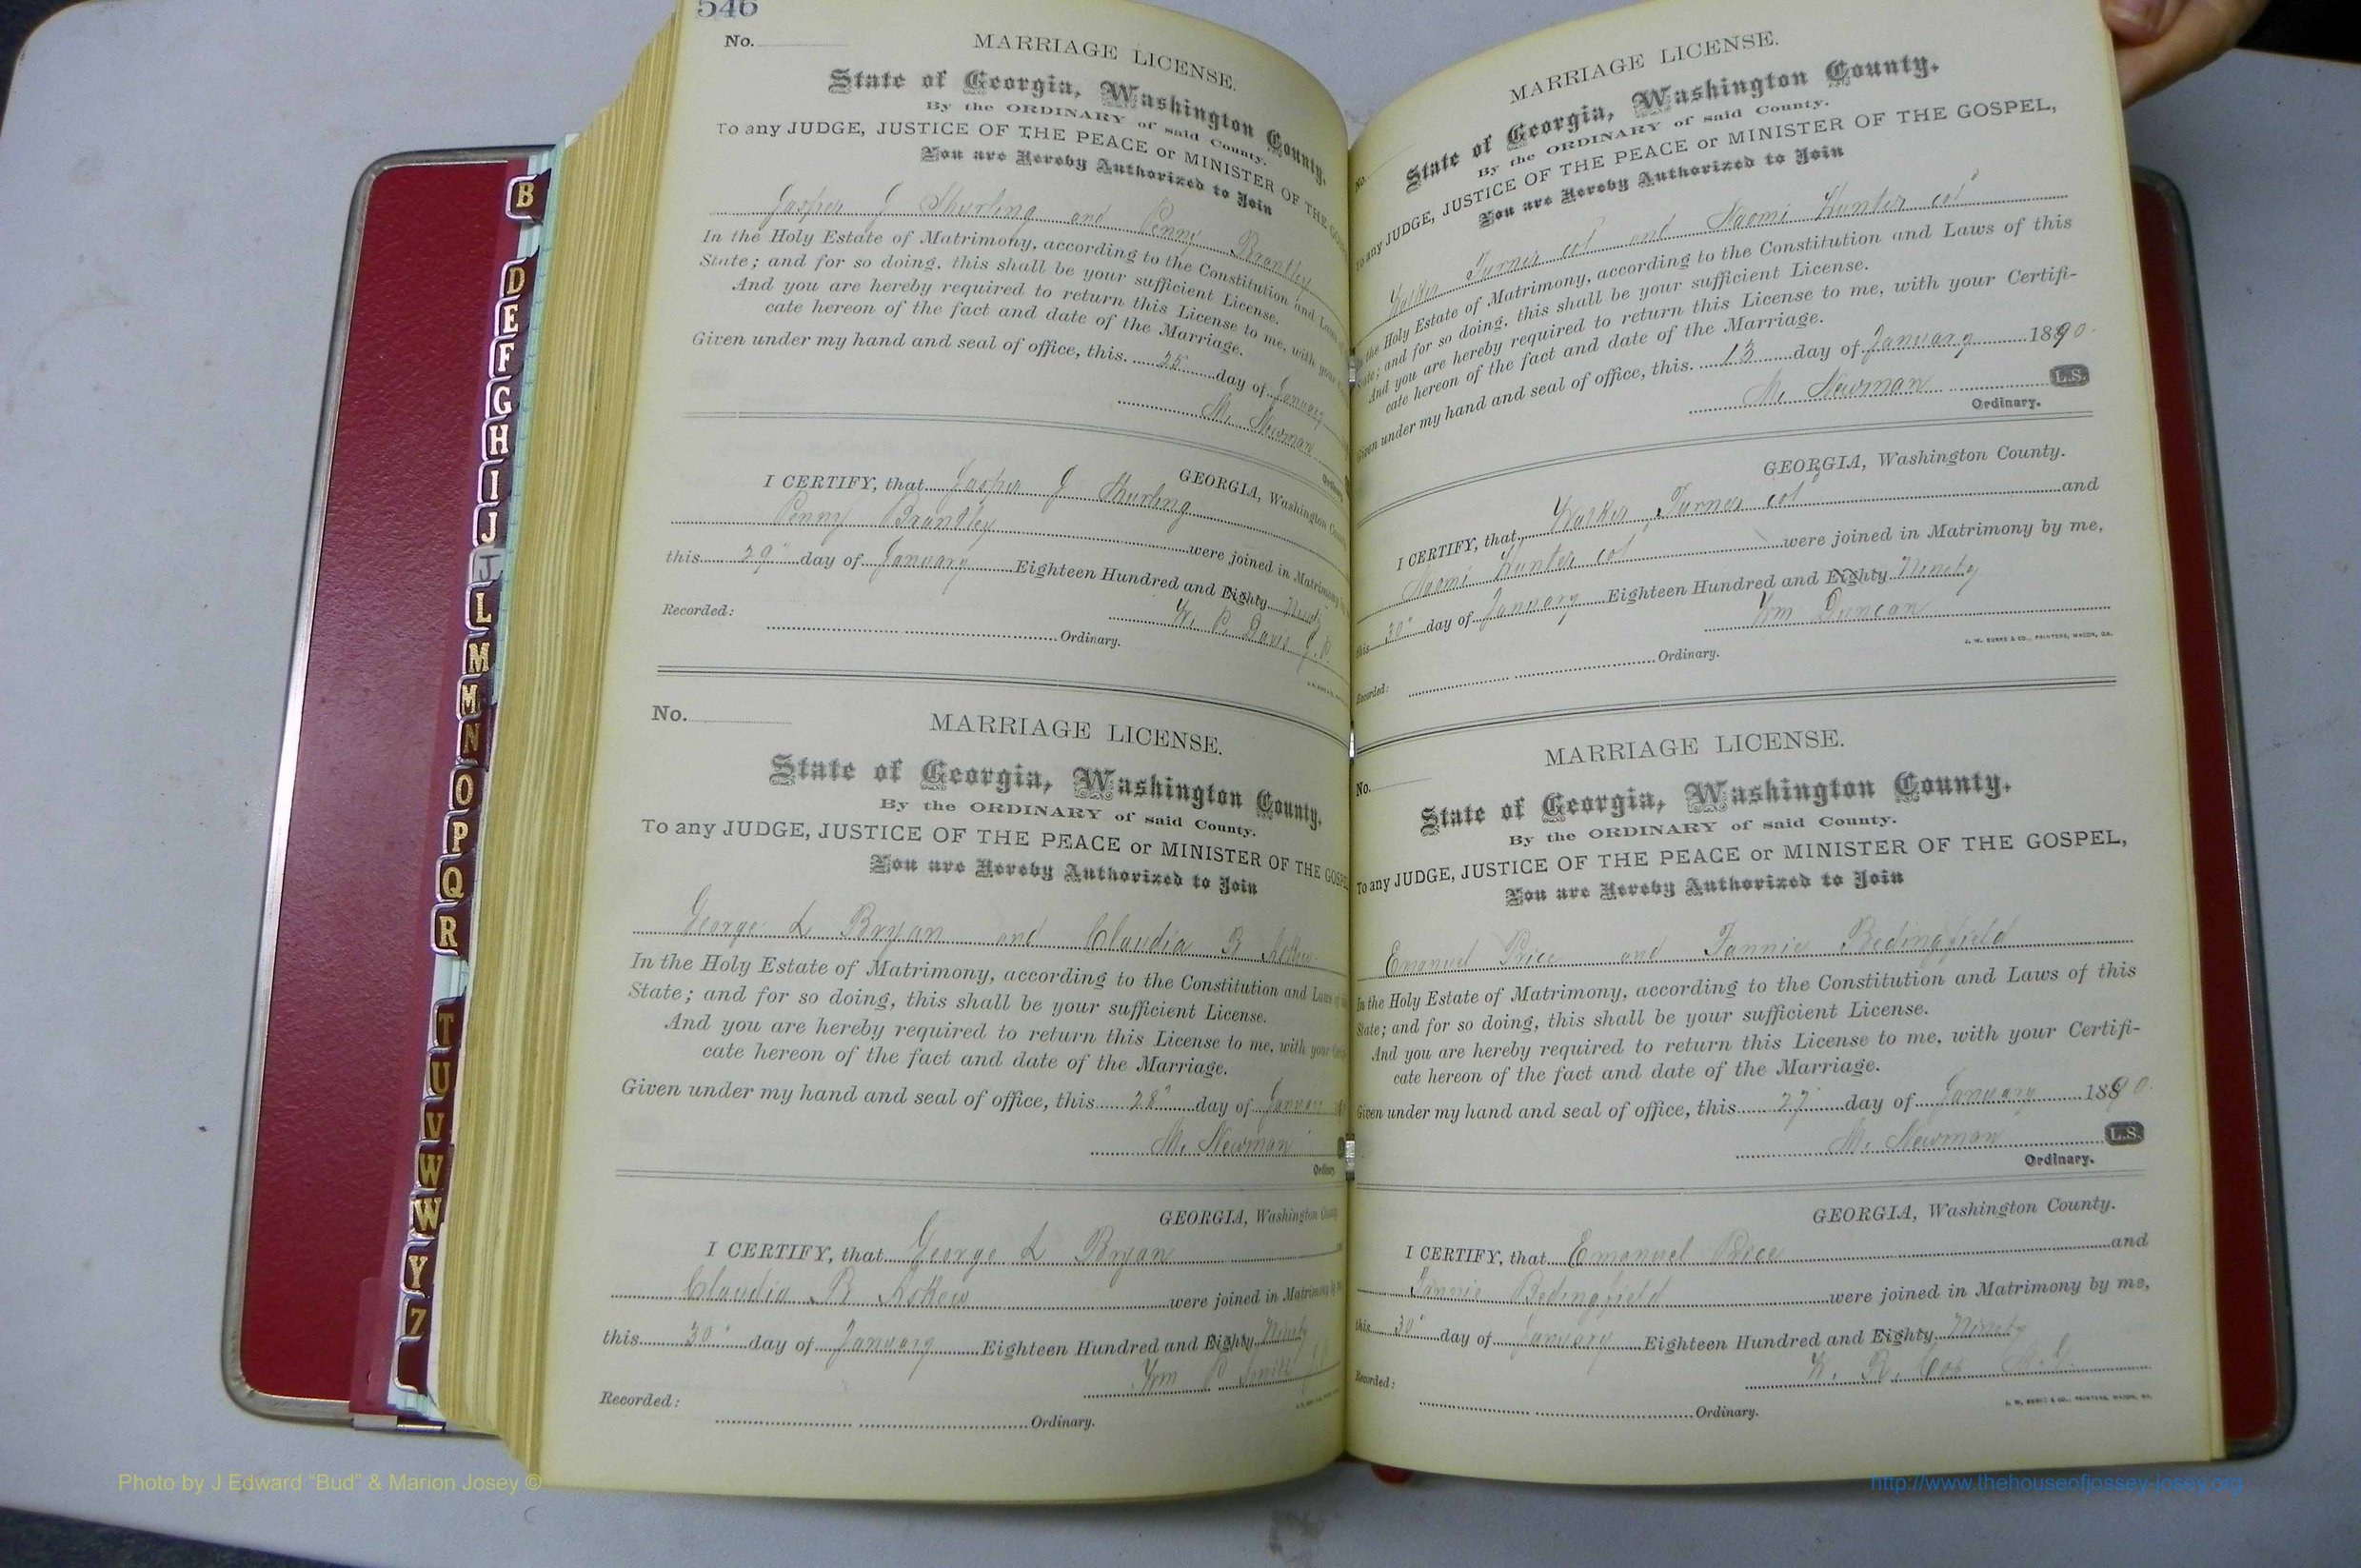 546
No.
MARRIAGE LICENSE.
State of Georgia, Washington County.
By the ORDINARY of said County.
To any JUDGE, JUSTICE OF THE PEACE or MINISTER OF THE GOS
You are Hereby Authorized to Join
Jasper J Thurling and Penny Brantley
In the Holy Estate of Matrimony, according to the Constitution and Laws
State; and for so doing, this shall be your sufficient License.
And you are hereby required to return this License to me, with your
cate hereon of the fact and date of the Marriage.
Given under my hand and seal of office, this 25 day of January
M. Newman
Ordinary
GEORGIA, Washington County
I CERTIFY, that Jasper J Thurling
Penny Brantley were joined in Matrimony
this 29" day of January Eighteen Hundred and Eighty Ninety
W. P. Davis J. P.
Recorded:
Ordinary.
No.
MARRIAGE LICENSE.
State of Georgia, Washington County.
By the ORDINARY of said County.
To any JUDGE, JUSTICE OF THE PEACE or MINISTER OF THE GOSPE
You are Hereby Authorized to Join
George L Bryan and Claudia B Askew
In the Holy Estate of Matrimony, according to the Constitution and Laws of
State; and for so doing, this shall be your sufficient License.
And you are hereby required to return this License to me, with your
cate hereon of the fact and date of the Marriage.
Given under my hand and seal of office, this 28" day of January
M. Newman
Ordinary
GEORGIA, Washington County
I CERTIFY, that George L Bryan
Claudia B Askew were joined in Matrimony by
this 30" day of January Eighteen Hundred and Eighty Ninety
Wm P Smith
Recorded:
Ordinary.
MARRIAGE LICENSE.
No.
State of Georgia, Washington County.
By the ORDINARY of said County.
To any JUDGE, JUSTICE OF THE PEACE or MINISTER OF THE GOSPEL,
You are Hereby Authorized to Join
Walker Turner col and Naomi Hunter col
In the Holy Estate of Matrimony, according to the Constitution and Laws of this
State; and for so doing, this shall be your sufficient License.
And you are hereby required to return this License to me, with your Certifi-
cate hereon of the fact and date of the Marriage.
Given under my hand and seal of office, this 13 day of January 1890.
M. Newman L.S.
Ordinary.
GEORGIA, Washington County.
I CERTIFY, that Walker Turner col and
Naomi Hunter col were joined in Matrimony by me,
this 30" day of January Eighteen Hundred and Eighty Ninety
Wm Duncan
J. W. BURKE & CO., PRINTERS, MACON, GA.
Recorded: Ordinary.
MARRIAGE LICENSE.
No.
State of Georgia, Washington County.
By the ORDINARY of said County.
To any JUDGE, JUSTICE OF THE PEACE or MINISTER OF THE GOSPEL,
You are Hereby Authorized to Join
Emanuel Price and Fannie Bedingfield
In the Holy Estate of Matrimony, according to the Constitution and Laws of this
State; and for so doing, this shall be your sufficient License.
And you are hereby required to return this License to me, with your Certifi-
cate hereon of the fact and date of the Marriage.
Given under my hand and seal of office, this 27" day of January 1890.
M. Newman L.S.
Ordinary.
GEORGIA, Washington County.
I CERTIFY, that Emanuel Price and
Fannie Bedingfield were joined in Matrimony by me,
this 30" day of January Eighteen Hundred and Eighty Ninety
W. R. Cox M. G.
J. W. BURKE & CO., PRINTERS, MACON, GA.
Recorded: Ordinary.
B
D
E
F
G
H
I
J
J
L
M
M
N
O
P
Q
R
T
U
V
W
W
Y
Z
Photo by J Edward “Bud” & Marion Josey ©
http://www.thehouseofjossey-josey.org